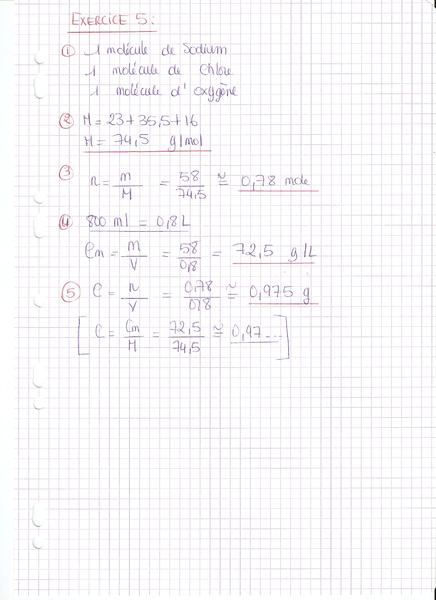 EXERCICE 5 :
① 1 molécule de Sodium
1 molécule de Chlore
1 molécule d'oxygène
② M = 23 + 35,5 + 16
M = 74,5 g/mol
③ n = m/M = 58/74,5 ≅ 0,78 mole
④ 800 ml = 0,8 L
Cm = m/V = 58/0,8 = 72,5 g/L
⑤ C = n/V = 0,78/0,8 ≅ 0,975 g
[ C = Cm/M = 72,5/74,5 ≅ 0,97... ]